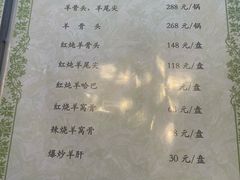 羊骨头、羊尾尖 288 元/锅
羊骨头 268 元/锅
红炖羊骨头 148 元/盘
红炖羊尾尖 118 元/盘
红炖羊哈巴 元/盘
红烧羊窝骨 元/盘
辣烧羊窝骨 8 元/盘
爆炒羊肝 30 元/盘